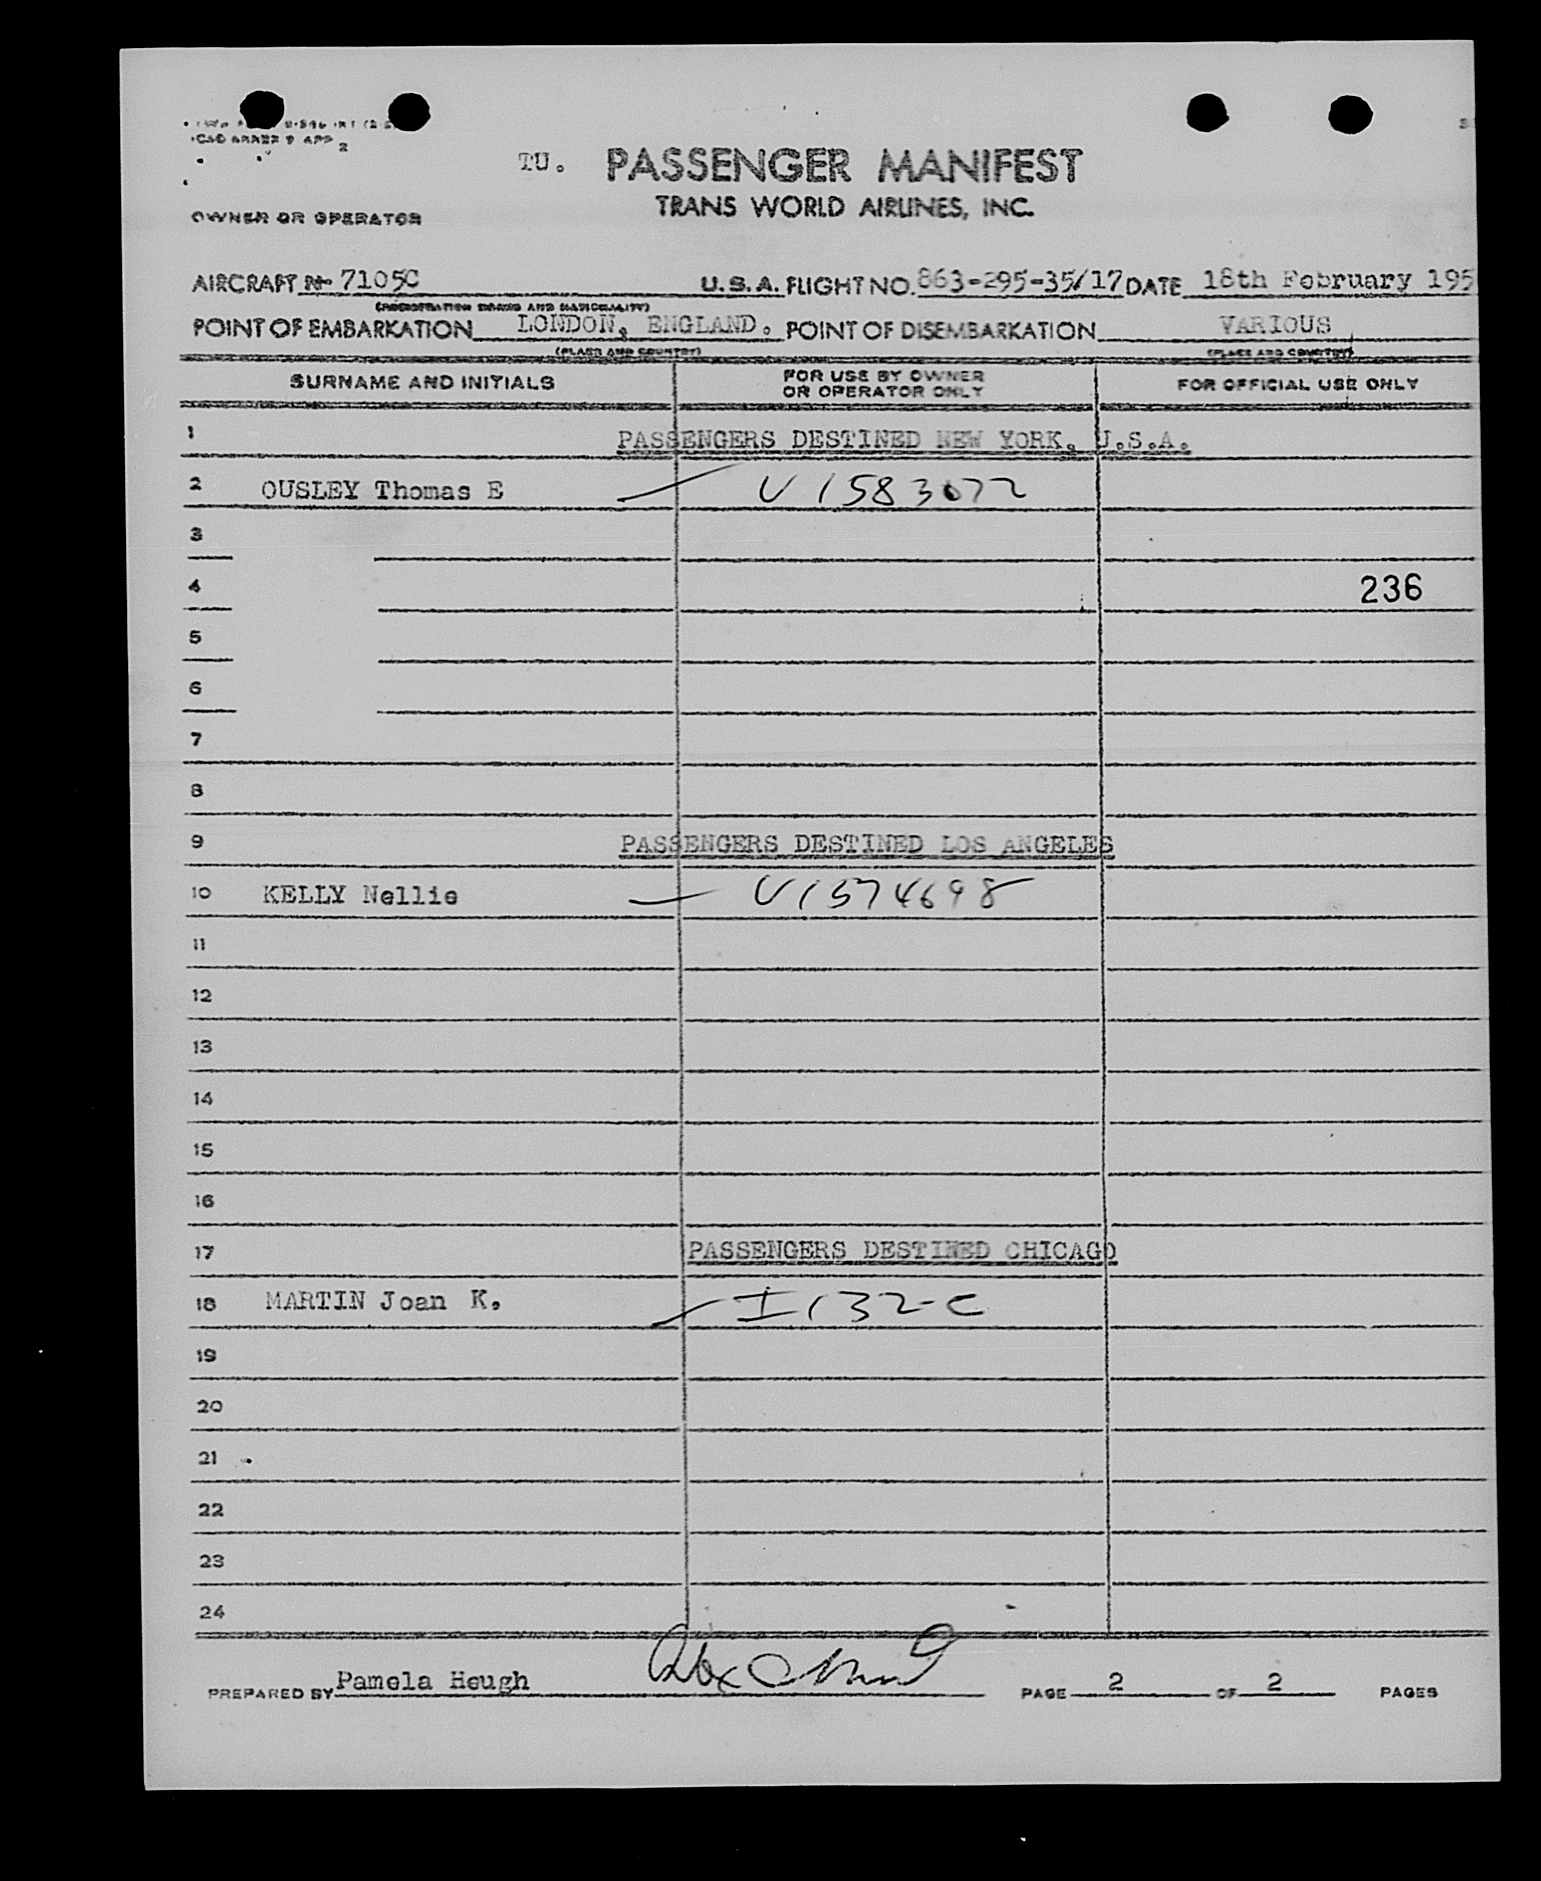 ICAO ANNEX 9 APP 2
TU. PASSENGER MANIFEST
TRANS WORLD AIRLINES, INC.
OWNER OR OPERATOR
AIRCRAFT N- 7105C U.S.A. FLIGHT NO. 863-295-35/17 DATE 18th February 195
(REGISTRATION MARKS AND NATIONALITY)
POINT OF EMBARKATION LONDON, ENGLAND. POINT OF DISEMBARKATION VARIOUS
(PLACE AND COUNTRY) (PLACE AND COUNTRY)
SURNAME AND INITIALS FOR USE BY OWNER OR OPERATOR ONLY FOR OFFICIAL USE ONLY
1 PASSENGERS DESTINED NEW YORK, U.S.A.
2 OUSLEY Thomas E V1583072
3
4 236
5
6
7
8
9 PASSENGERS DESTINED LOS ANGELES
10 KELLY Nellie V1574698
11
12
13
14
15
16
17 PASSENGERS DESTINED CHICAGO
18 MARTIN Joan K. I132-C
19
20
21
22
23
24
PREPARED BY Pamela Heugh PAGE 2 OF 2 PAGES